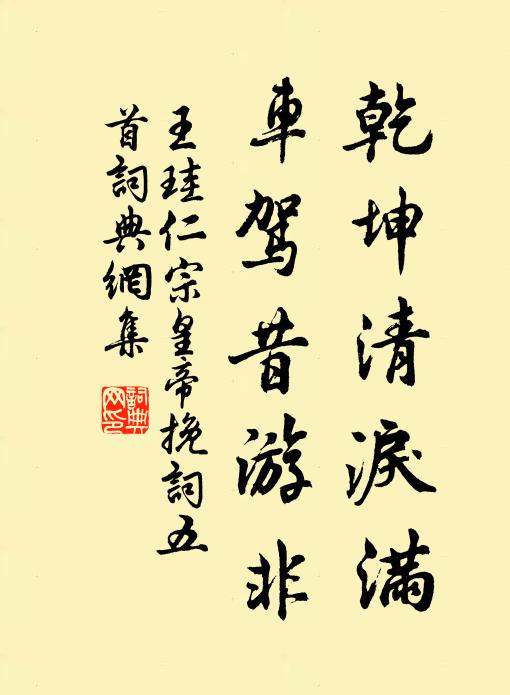 乾坤清淚滿
車駕昔游非
王珪仁宗皇帝挽詞五
首詞典網集
詞典
网印